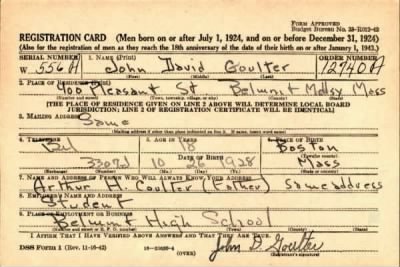 Form Approved
Budget Bureau No. 33-R012-42
REGISTRATION CARD (Men born on or after July 1, 1924, and on or before December 31, 1924)
(Also for the registration of men as they reach the 18th anniversary of the date of their birth on or after January 1, 1943.)
SERIAL NUMBER 1. NAME (Print) ORDER NUMBER
W 556A John David Coulter 12740A
(First) (Middle) (Last)
2. PLACE OF RESIDENCE (Print)
400 Pleasant St Belmont Mass
[THE PLACE OF RESIDENCE GIVEN ON LINE 2 ABOVE WILL DETERMINE LOCAL BOARD
JURISDICTION; LINE 2 OF REGISTRATION CERTIFICATE WILL BE IDENTICAL]
3. MAILING ADDRESS
Same
[Mailing address if other than place indicated on line 2. If same, insert word same]
4. TELEPHONE 5. AGE IN YEARS 6. PLACE OF BIRTH
Bel 18 Boston
DATE OF BIRTH (Town or county)
10 26 Mass
(Exchange) (Number) (Mo.) (Day) (Yr.) (State or country)
7. NAME AND ADDRESS OF PERSON WHO WILL ALWAYS KNOW YOUR ADDRESS
Arthur H. Coulter (Father) same address
8. EMPLOYER'S NAME AND ADDRESS
Student
9. PLACE OF EMPLOYMENT OR BUSINESS
Belmont High School
I AFFIRM THAT I HAVE VERIFIED ABOVE ANSWERS AND THAT THEY ARE TRUE.
DSS Form 1 (Rev. 11-16-42) (OVER) John D. Coulter
(Registrant's signature)